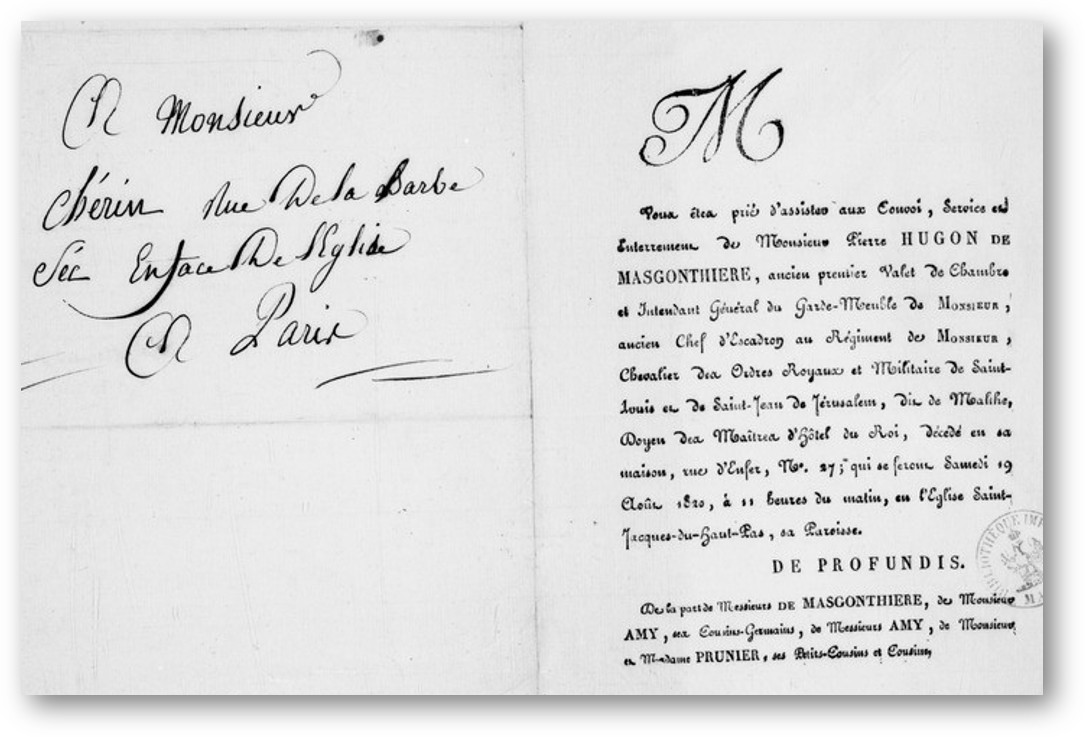 A Monsieur
Chérin rue De la Barbe
Séc En face De l'Eglise
A Paris
M
Vous êtes prié d'assister aux Convoi, Service et
Enterrement de Monsieur Pierre HUGON DE
MASGONTHIERE, ancien premier Valet de Chambre
et Intendant Général du Garde-Meuble de MONSIEUR,
ancien Chef d'Escadron au Régiment de MONSIEUR,
Chevalier des Ordres Royaux et Militaire de Saint-
Louis et de Saint-Jean de Jérusalem, dit de Malthe,
Doyen des Maîtres d'Hôtel du Roi, décédé en sa
maison, rue d'Enfer, N°. 27; qui se feront Samedi 19
Août 1820, à 11 heures du matin, en l'Eglise Saint-
Jacques-du-Haut-Pas, sa Paroisse.
DE PROFUNDIS.
De la part de Messieurs DE MASGONTHIERE, de Monsieur
AMY, ses Cousins-Germains, de Messieurs AMY, de Monsieur
et Madame PRUNIER, ses Petits-Cousins et Cousine,
BIBLIOTHÈQUE IMP
MA